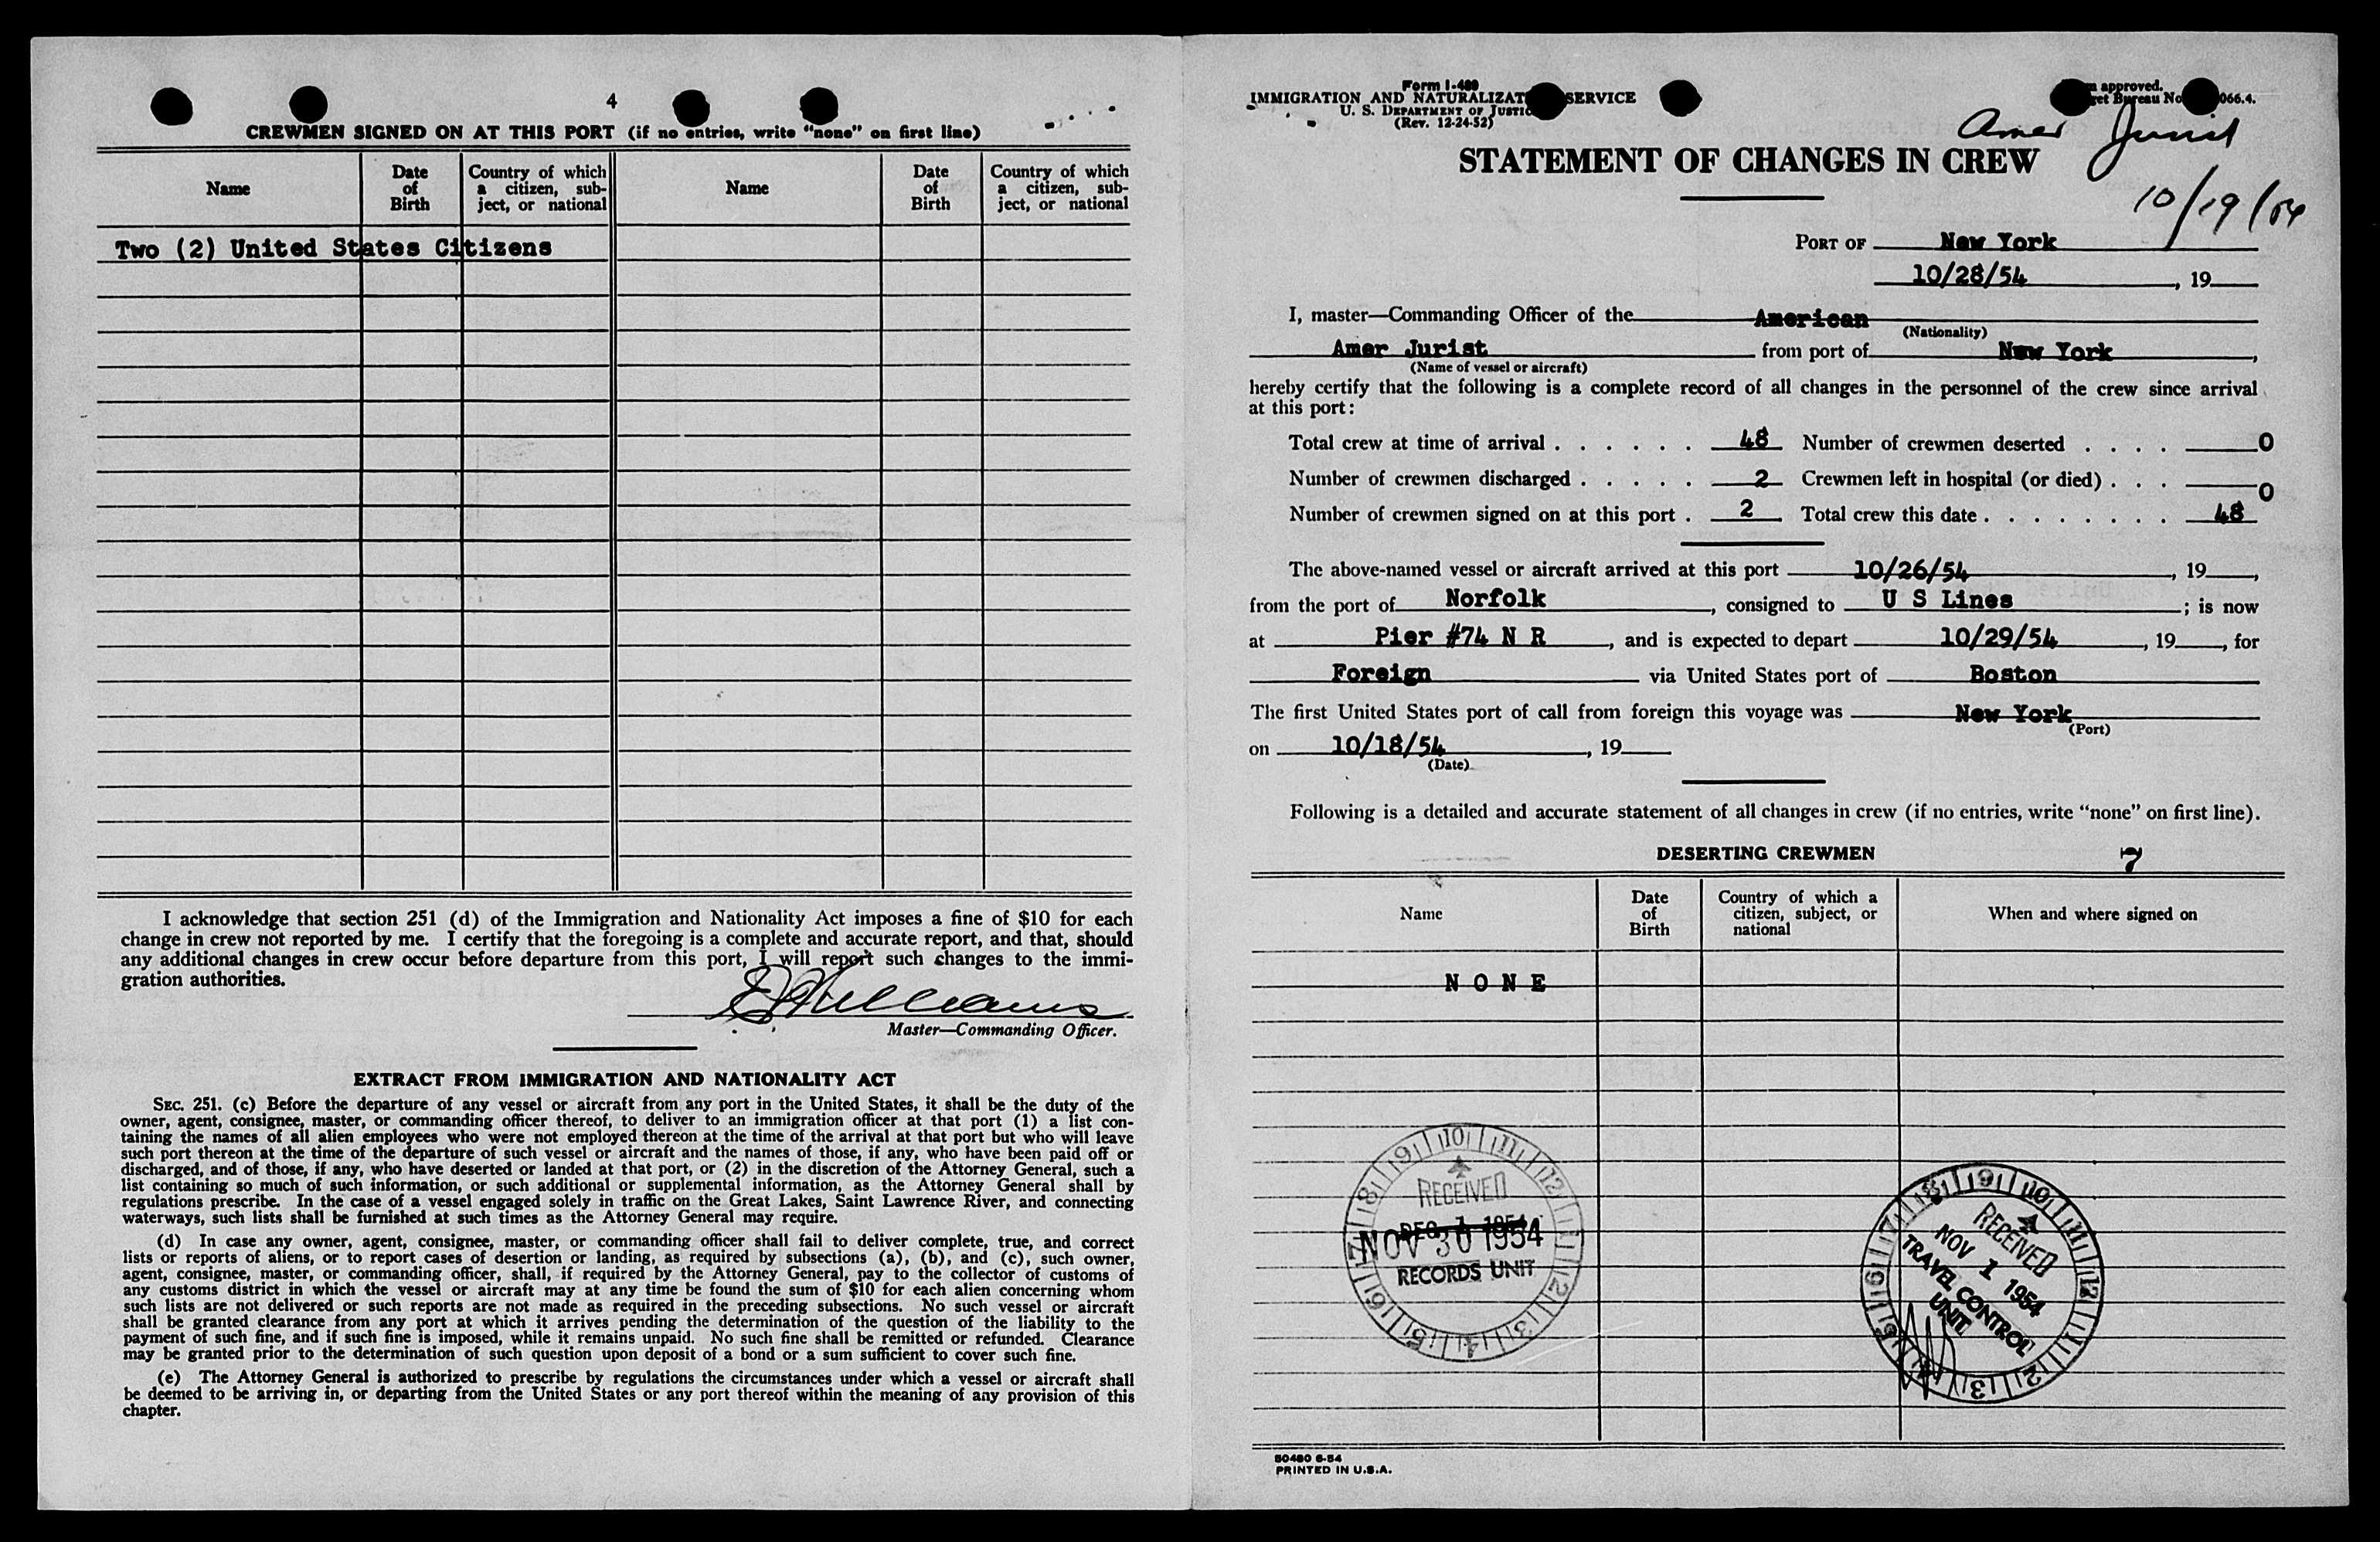 4
CREWMEN SIGNED ON AT THIS PORT (if no entries, write “none” on first line)
Name
Date of Birth
Country of which a citizen, subject, or national
Name
Date of Birth
Country of which a citizen, subject, or national
Two (2) United States Citizens
I acknowledge that section 251 (d) of the Immigration and Nationality Act imposes a fine of $10 for each
change in crew not reported by me. I certify that the foregoing is a complete and accurate report, and that, should
any additional changes in crew occur before departure from this port, I will report such changes to the immi-
gration authorities.
E Williams
Master—Commanding Officer.
EXTRACT FROM IMMIGRATION AND NATIONALITY ACT
SEC. 251. (c) Before the departure of any vessel or aircraft from any port in the United States, it shall be the duty of the
owner, agent, consignee, master, or commanding officer thereof, to deliver to an immigration officer at that port (1) a list con-
taining the names of all alien employees who were not employed thereon at the time of the arrival at that port but who will leave
such port thereon at the time of the departure of such vessel or aircraft and the names of those, if any, who have been paid off or
discharged, and of those, if any, who have deserted or landed at that port, or (2) in the discretion of the Attorney General, such a
list containing so much of such information, or such additional or supplemental information, as the Attorney General shall by
regulations prescribe. In the case of a vessel engaged solely in traffic on the Great Lakes, Saint Lawrence River, and connecting
waterways, such lists shall be furnished at such times as the Attorney General may require.
(d) In case any owner, agent, consignee, master, or commanding officer shall fail to deliver complete, true, and correct
lists or reports of aliens, or to report cases of desertion or landing, as required by subsections (a), (b), and (c), such owner,
agent, consignee, master, or commanding officer, shall, if required by the Attorney General, pay to the collector of customs of
any customs district in which the vessel or aircraft may at any time be found the sum of $10 for each alien concerning whom
such lists are not delivered or such reports are not made as required in the preceding subsections. No such vessel or aircraft
shall be granted clearance from any port at which it arrives pending the determination of the question of the liability to the
payment of such fine, and if such fine is imposed, while it remains unpaid. No such fine shall be remitted or refunded. Clearance
may be granted prior to the determination of such question upon deposit of a bond or a sum sufficient to cover such fine.
(e) The Attorney General is authorized to prescribe by regulations the circumstances under which a vessel or aircraft shall
be deemed to be arriving in, or departing from the United States or any port thereof within the meaning of any provision of this
chapter.
Form I-489
IMMIGRATION AND NATURALIZAT SERVICE
U. S. DEPARTMENT OF JUSTIC
(Rev. 12-24-52)
approved.
get Bureau No 066.4.
Amer Jurist
10/19/54
STATEMENT OF CHANGES IN CREW
PORT OF New York
10/28/54, 19
I, master—Commanding Officer of the American
(Nationality)
Amer Jurist from port of New York,
(Name of vessel or aircraft)
hereby certify that the following is a complete record of all changes in the personnel of the crew since arrival
at this port:
Total crew at time of arrival . . . . . . 48 Number of crewmen deserted . . . . 0
Number of crewmen discharged . . . . . 2 Crewmen left in hospital (or died) . . . 0
Number of crewmen signed on at this port . 2 Total crew this date . . . . . . . . 48
The above-named vessel or aircraft arrived at this port 10/26/54, 19,
from the port of Norfolk, consigned to U S Lines; is now
at Pier #74 N R, and is expected to depart 10/29/54, 19, for
Foreign via United States port of Boston
The first United States port of call from foreign this voyage was New York
(Port)
on 10/18/54, 19
(Date)
Following is a detailed and accurate statement of all changes in crew (if no entries, write “none” on first line).
DESERTING CREWMEN
7
Name
Date of Birth
Country of which a citizen, subject, or national
When and where signed on
N O N E
8 9 10 11 12 1 2 3 4 5 6 7
RECEIVED
DEC 1 1954
NOV 30 1954
RECORDS UNIT
8 9 10 11 12 1 2 3 4 5 6 7
RECEIVED
NOV 1 1954
TRAVEL CONTROL
UNIT
50480 6-54
PRINTED IN U.S.A.